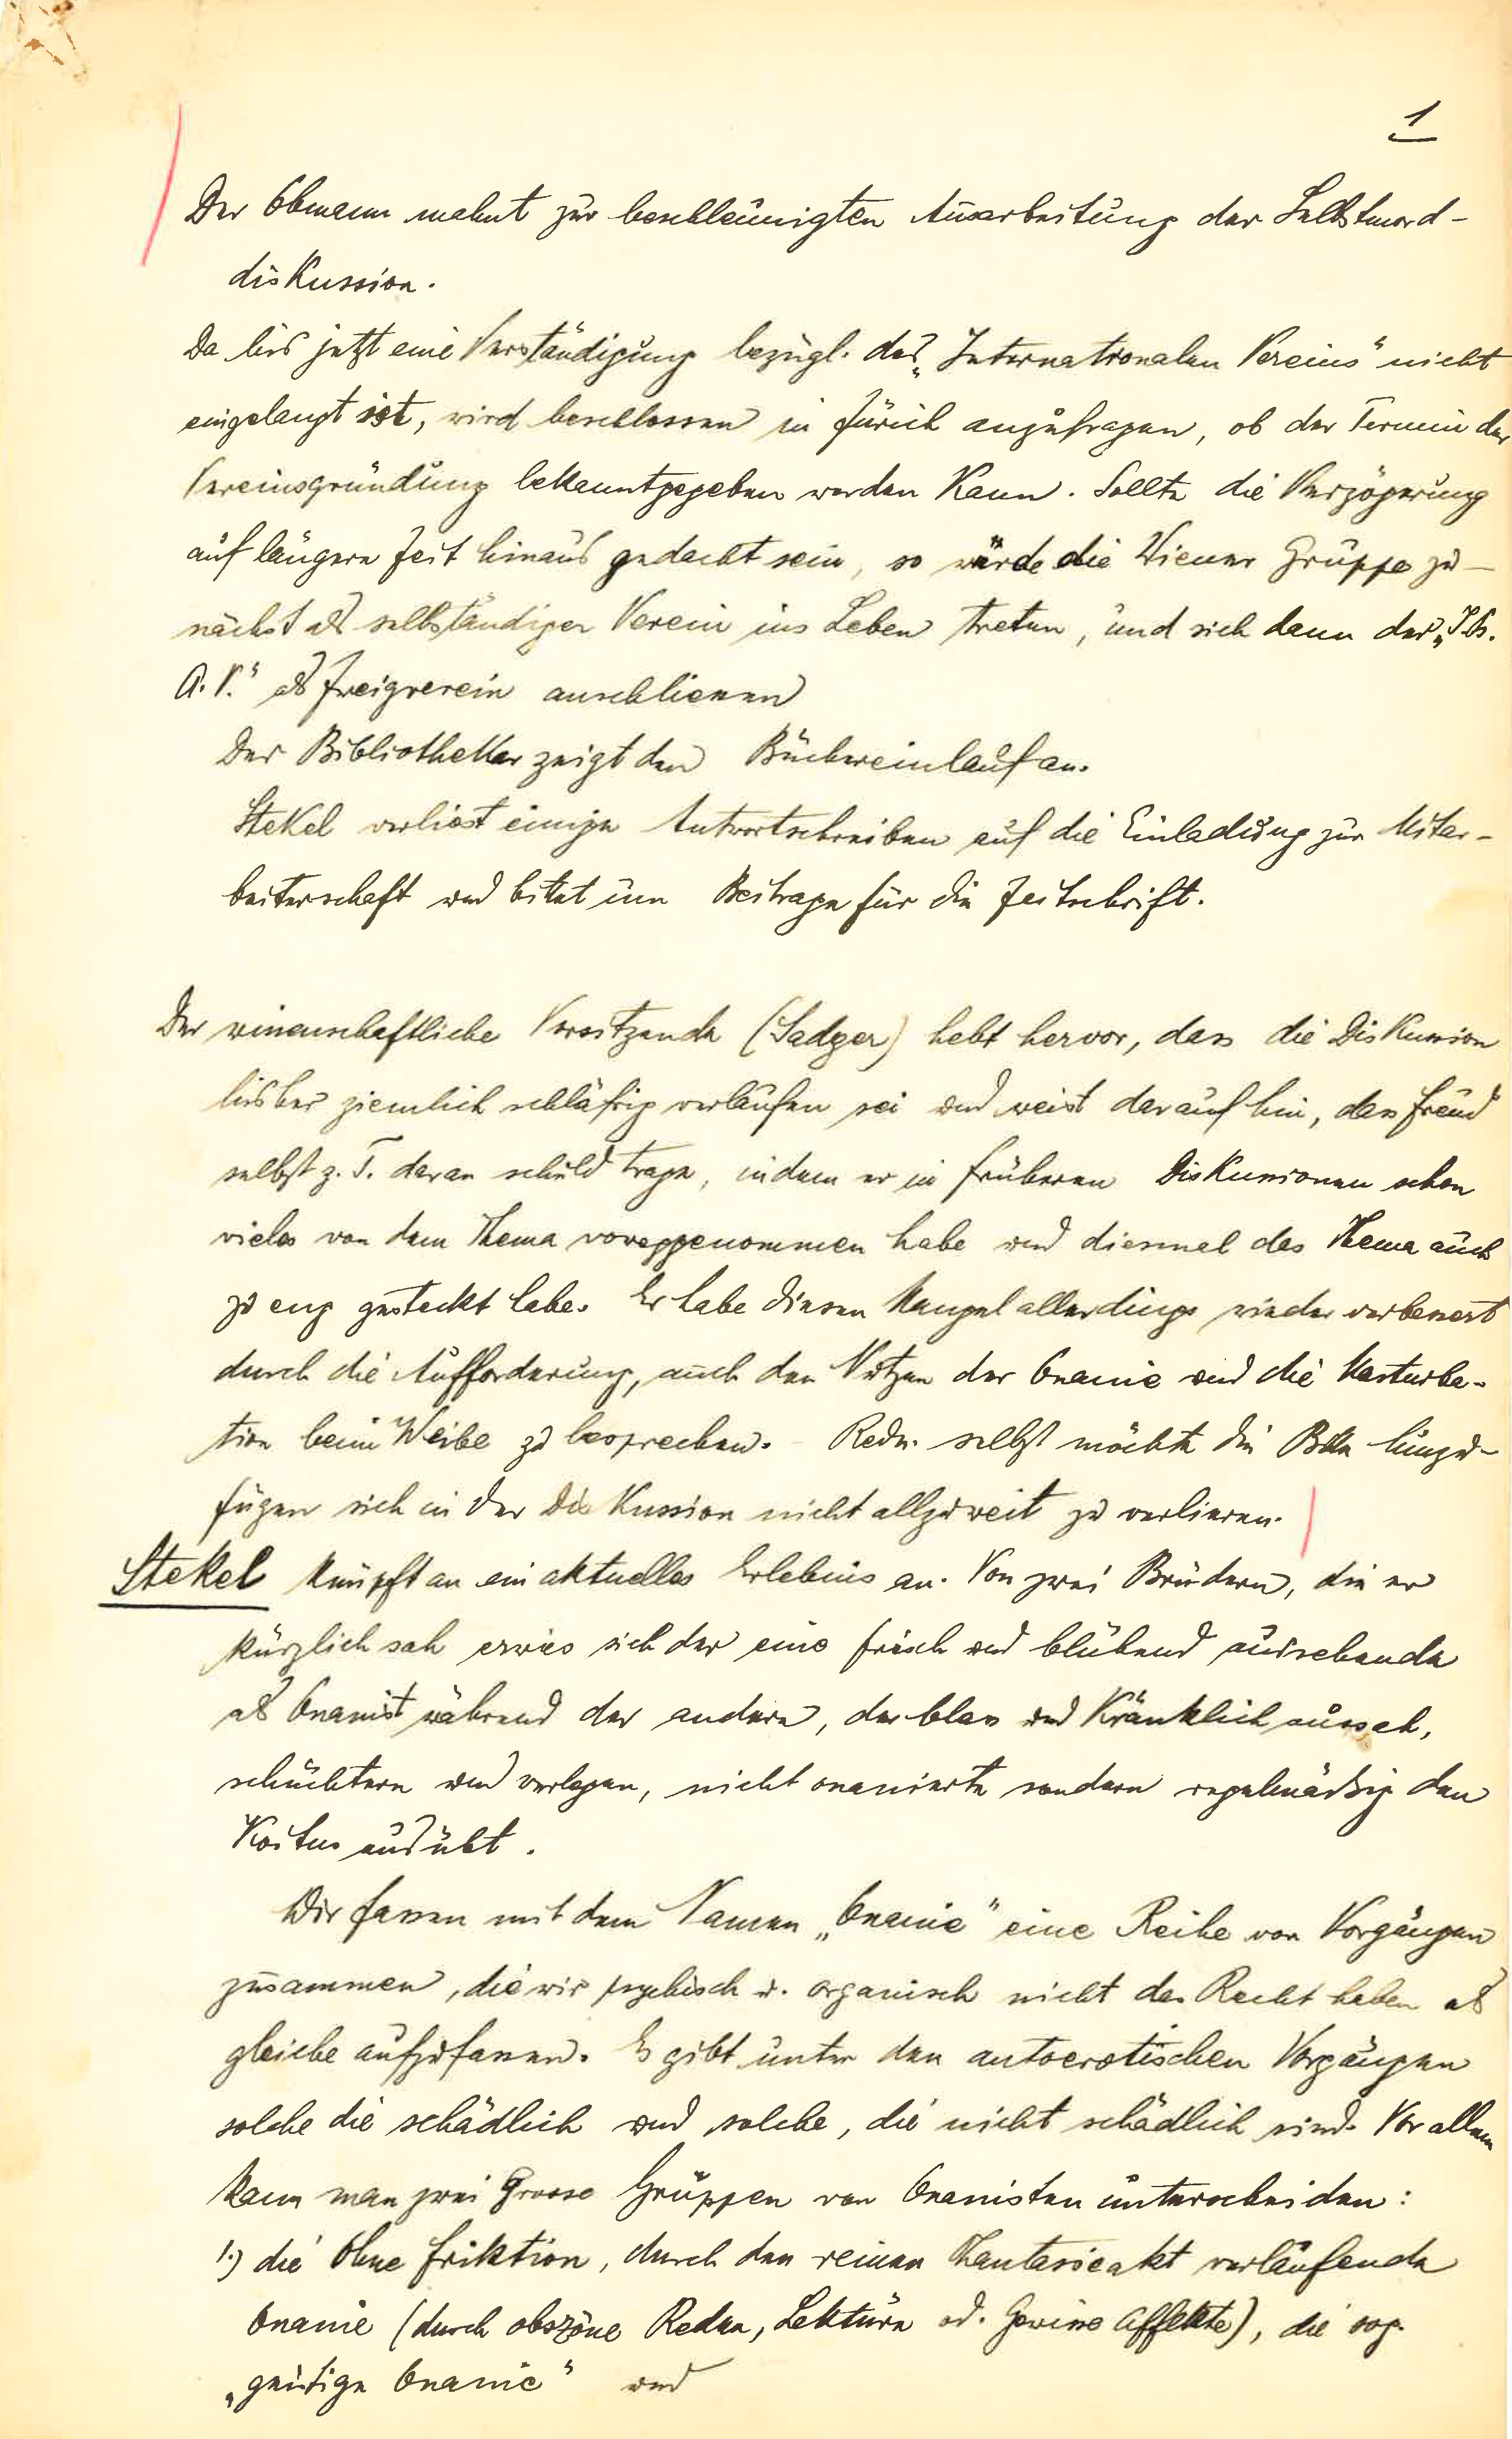 1
Der Obmann mahnt zur beschleunigten Ausarbeitung der Selbstmord-
diskussion.
Da bis jetzt eine Verständigung bezügl. des „Internationalen Vereins“ nicht
eingelangt ist, wird beschlossen in Zürich anzufragen, ob der Termin der
Vereinsgründung bekanntgegeben werden kann. Sollte die Verzögerung
auf längere Zeit hinaus gedacht sein, so würde die Wiener Gruppe zu-
nächst als selbständiger Verein ins Leben treten, und sich dann der „I.Ps.
A.V.“ als Zweigverein anschliessen
Der Bibliothekar zeigt den Büchereinlauf an.
Stekel verliest einige Antwortschreiben auf die Einladung zur Mitar-
beiterschaft und bittet um Beitrage für die Zeitschrift.
Der wissenschaftliche Vorsitzende (Sadger) hebt hervor, dass die Diskussion
bisher ziemlich schläfrig verlaufen sei und weist darauf hin, dass Freud
selbst z. T. daran schuld trage, indem er in früheren Diskussionen schon
vieles von dem Thema voweggenommen habe und diesmal das Thema auch
zu eng gesteckt habe. Er habe diesen Mangel allerdings wieder verbessert
durch die Aufforderung, auch den Nutzen der Onanie und die Masturba-
tion beim Weibe zu besprechen. - Redn. selbst möchte die Bitte hinzu-
fügen sich in der Diskussion nicht allzuweit zu verlieren.
Stekel knüpft an ein aktuelles Erlebnis an. Von zwei Brüdern, die er
kürzlich sah erwies sich der eine frisch und blühend aussehende
als Onanist während der andere, der blass und kränklich aussah,
schüchtern und verlegen, nicht onanierte sondern regelmäßig den
Koitus ausübt.
Wir fassen mit dem Namen „Onanie“ eine Reihe von Vorgängen
zusammen, die wir psychisch u. organisch nicht das Recht haben als
gleiche aufzufassen. Es gibt unter den autoerotischen Vorgängen
solche die schädlich und solche, die nicht schädlich sind. Vor allem
kann man zwei Grosse Gruppen von Onanisten unterscheiden:
1.) die ohne Friktion, durch den reinen Fantasieakt verlaufende
Onanie (durch obszöne Reden, Lektüre od. Gewisse Affekte), die sog.
„geistige Onanie“ und